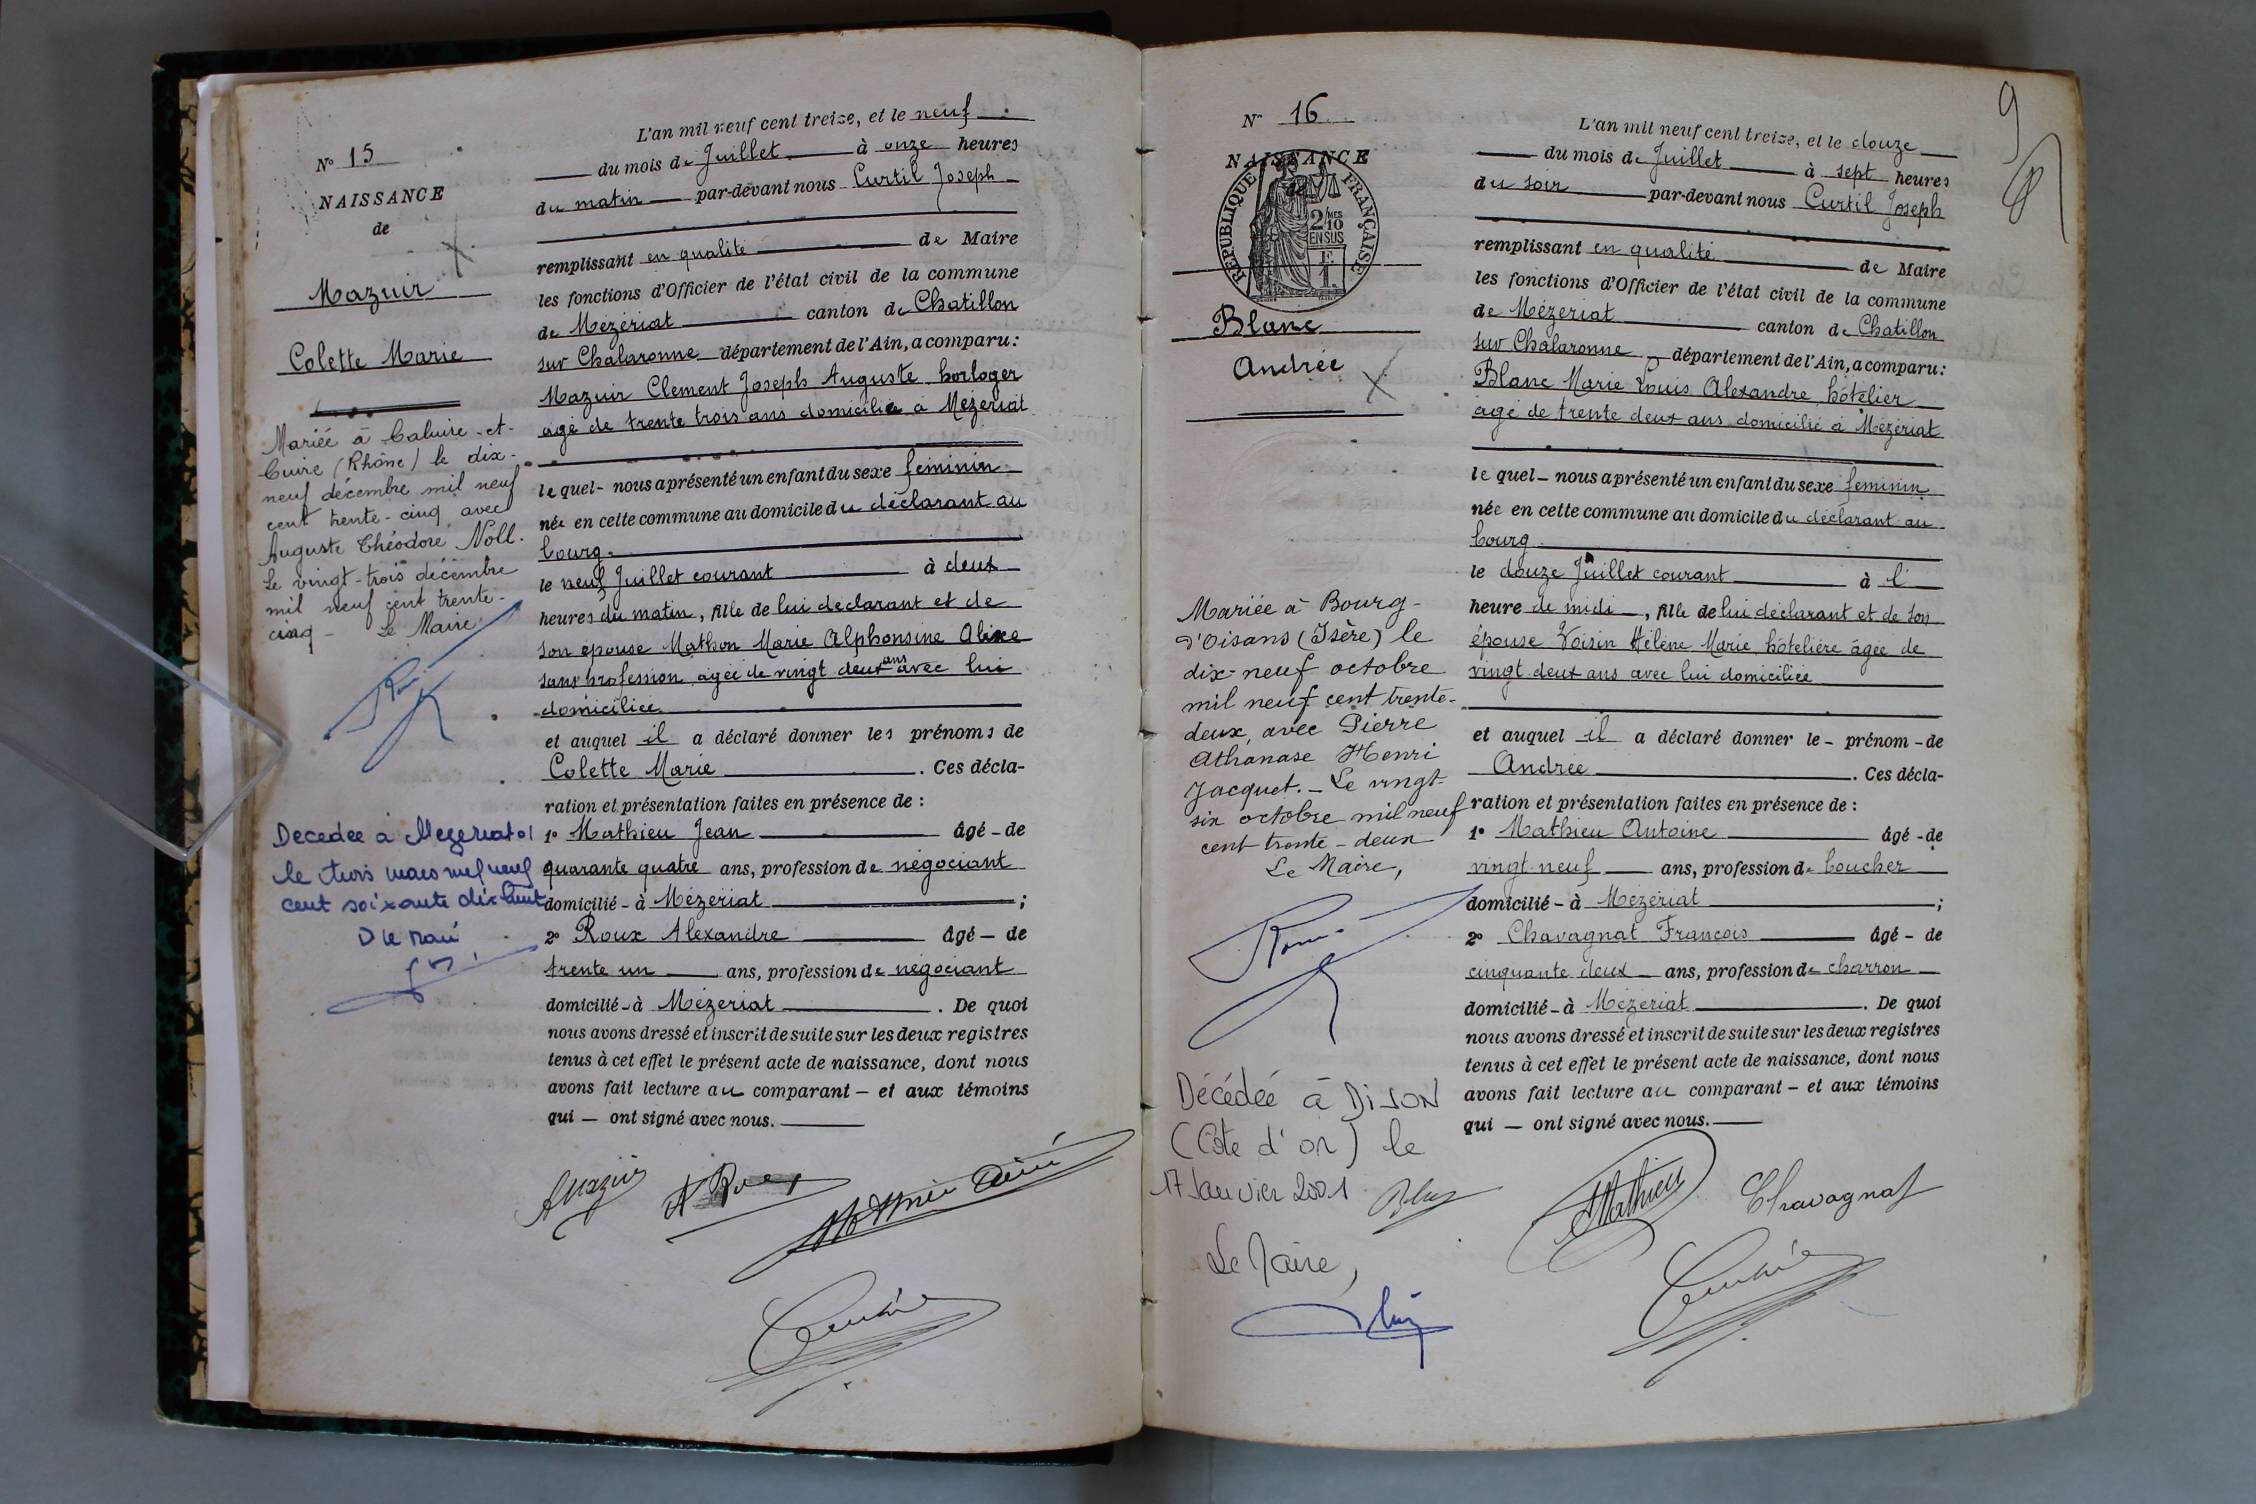 N° 15
NAISSANCE
de
Mazuir
Colette Marie
Mariée à Caluire-et-
Cuire (Rhône) le dix-
neuf décembre mil neuf
cent trente-cinq avec
Auguste Théodore Noll.
Le vingt-trois décembre
mil neuf cent trente-
cinq - Le Maire
Décédée à Mézériat 01
le trois mars mil neuf
cent soixante dix huit
L'an mil neuf cent treize, et le neuf
du mois de Juillet à onze heures
du matin par-devant nous Curtil Joseph
remplissant en qualité de Maire
les fonctions d'Officier de l'état civil de la commune
de Mézériat canton de Chatillon
sur Chalaronne département de l'Ain, a comparu:
Mazuir Clement Joseph Auguste horloger
agé de trente trois ans domicilié à Mézériat
le quel- nous a présenté un enfant du sexe féminin
née en cette commune au domicile du déclarant au
bourg.
le neuf Juillet courant à deux
heures du matin, fille de lui déclarant et de
son épouse Mathon Marie Alphonsine Alixe
sans profession agée de vingt deux ans avec lui
domiciliée
et auquel il a déclaré donner les prénoms de
Colette Marie. Ces décla-
ration et présentation faites en présence de :
1° Mathieu Jean âgé - de
quarante quatre ans, profession de négociant
domicilié - à Mézériat ;
2° Roux Alexandre âgé — de
trente un ans, profession de négociant
domicilié-à Mézériat. De quoi
nous avons dressé et inscrit de suite sur les deux registres
tenus à cet effet le présent acte de naissance, dont nous
avons fait lecture au comparant — et aux témoins
qui — ont signé avec nous.
9
N° 16
NAISSANCE
de
RÉPUBLIQUE FRANÇAISE
2/10 MES
EN SUS
Blanc
Andrée
Mariée à Bourg-
d'Oisans (Isère) le
dix-neuf octobre
mil neuf cent trente-
deux, avec Pierre
Athanase Henri
Jacquet. - Le vingt-
six octobre mil neuf
cent trente-deux
Le Maire,
Décédée à DIJON
(Côte d'or) le
17 Janvier 2001
Le Maire,
L'an mil neuf cent treize, et le douze
du mois de Juillet à sept heures
du soir par-devant nous Curtil Joseph
remplissant en qualité de Maire
les fonctions d'Officier de l'état civil de la commune
de Mézériat canton de Chatillon
sur Chalaronne département de l'Ain, a comparu:
Blanc Marie Louis Alexandre hôtelier
agé de trente deux ans domicilié à Mézériat
le quel - nous a présenté un enfant du sexe féminin
née en cette commune au domicile du déclarant au
bourg
le douze Juillet courant à l'
heure de midi, fille de lui déclarant et de son
épouse Voisin Hélène Marie, hôtelière âgée de
vingt deux ans avec lui domiciliée
et auquel il a déclaré donner le - prénom - de
Andrée. Ces décla-
ration et présentation faites en présence de :
1° Mathieu Antoine âgé - de
vingt-neuf ans, profession de boucher
domicilié - à Mézériat ;
2° Chavagnat François âgé - de
cinquante deux ans, profession de charron
domicilié - à Mézériat. De quoi
nous avons dressé et inscrit de suite sur les deux registres
tenus à cet effet le présent acte de naissance, dont nous
avons fait lecture au comparant — et aux témoins
qui — ont signé avec nous.
Mathieu Chavagnat